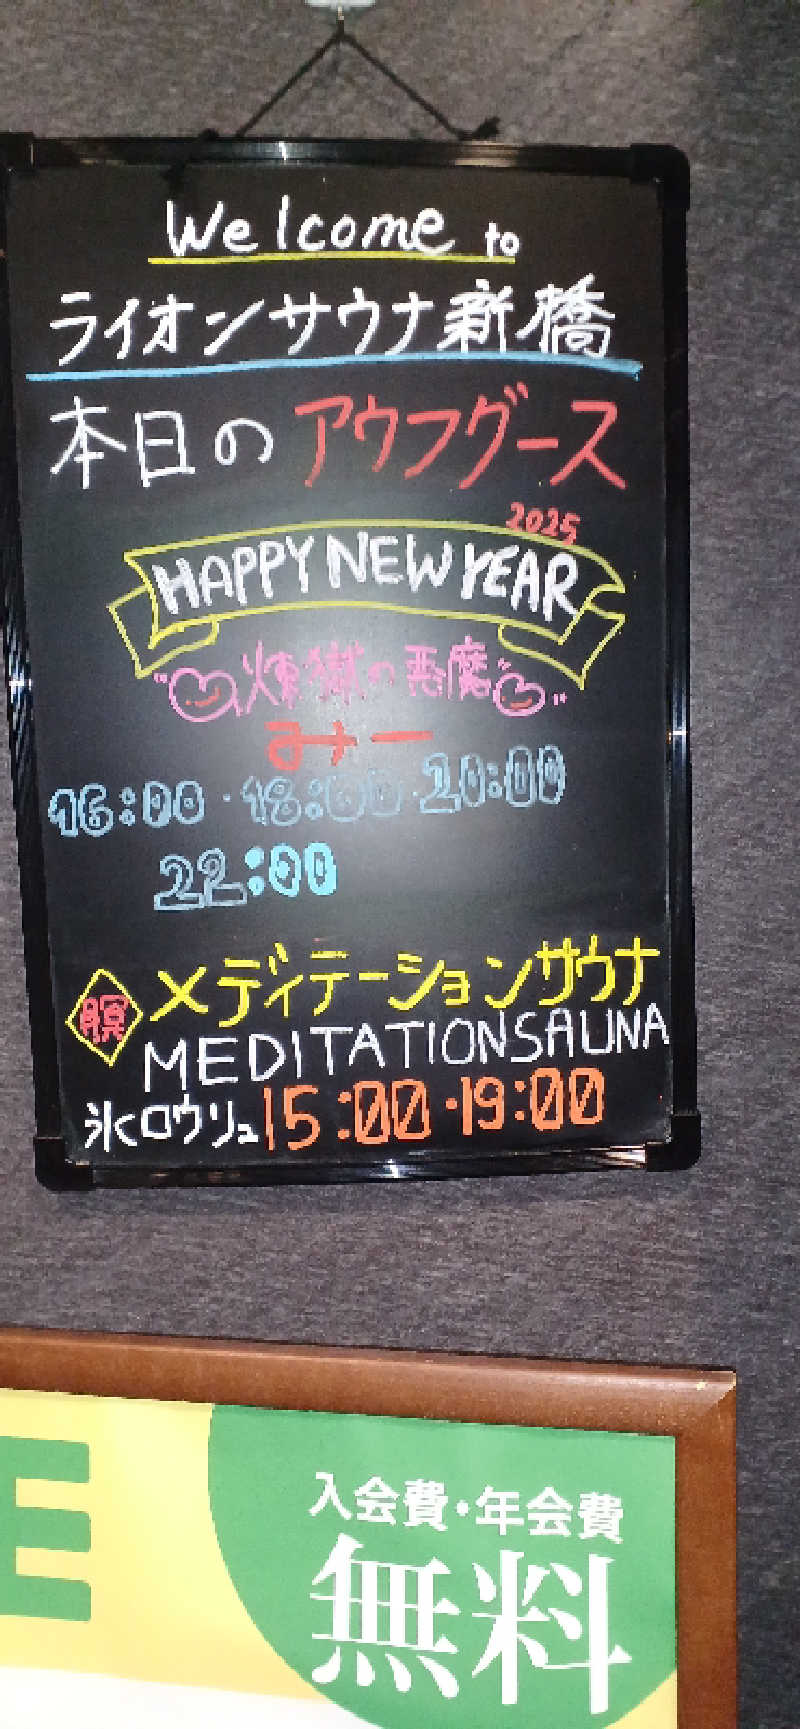 Welcome to
ライオンサウナ新橋
本日のアウフグース
2025
HAPPY NEW YEAR
"煉獄の悪魔"
みー
16:00・18:00・20:00
22:00
瞑 メディテーションサウナ
MEDITATIONSAUNA
氷ロウリュ 15:00・19:00
E
入会費・年会費
無料